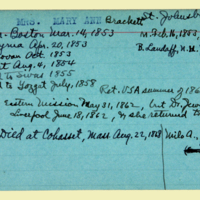 MRS. MARY ANN Brackett St. Johnsb
Boston Mar. 14, 1853 M. Feb. 16, 1853
Smyrna Apr. 20, 1853 B. Landaff, N.H.
Oct 1853
Aug. 4, 1854
to Sivas 1855
to Tozgat July, 1858 Ret. USA summer of 186
Eastern Mission May 31, 1862, but Dr. Jew
Liverpool June 18, 1862, & she returned to
Died at Cohasset, Mass Aug. 22, 1868 Mils A.,